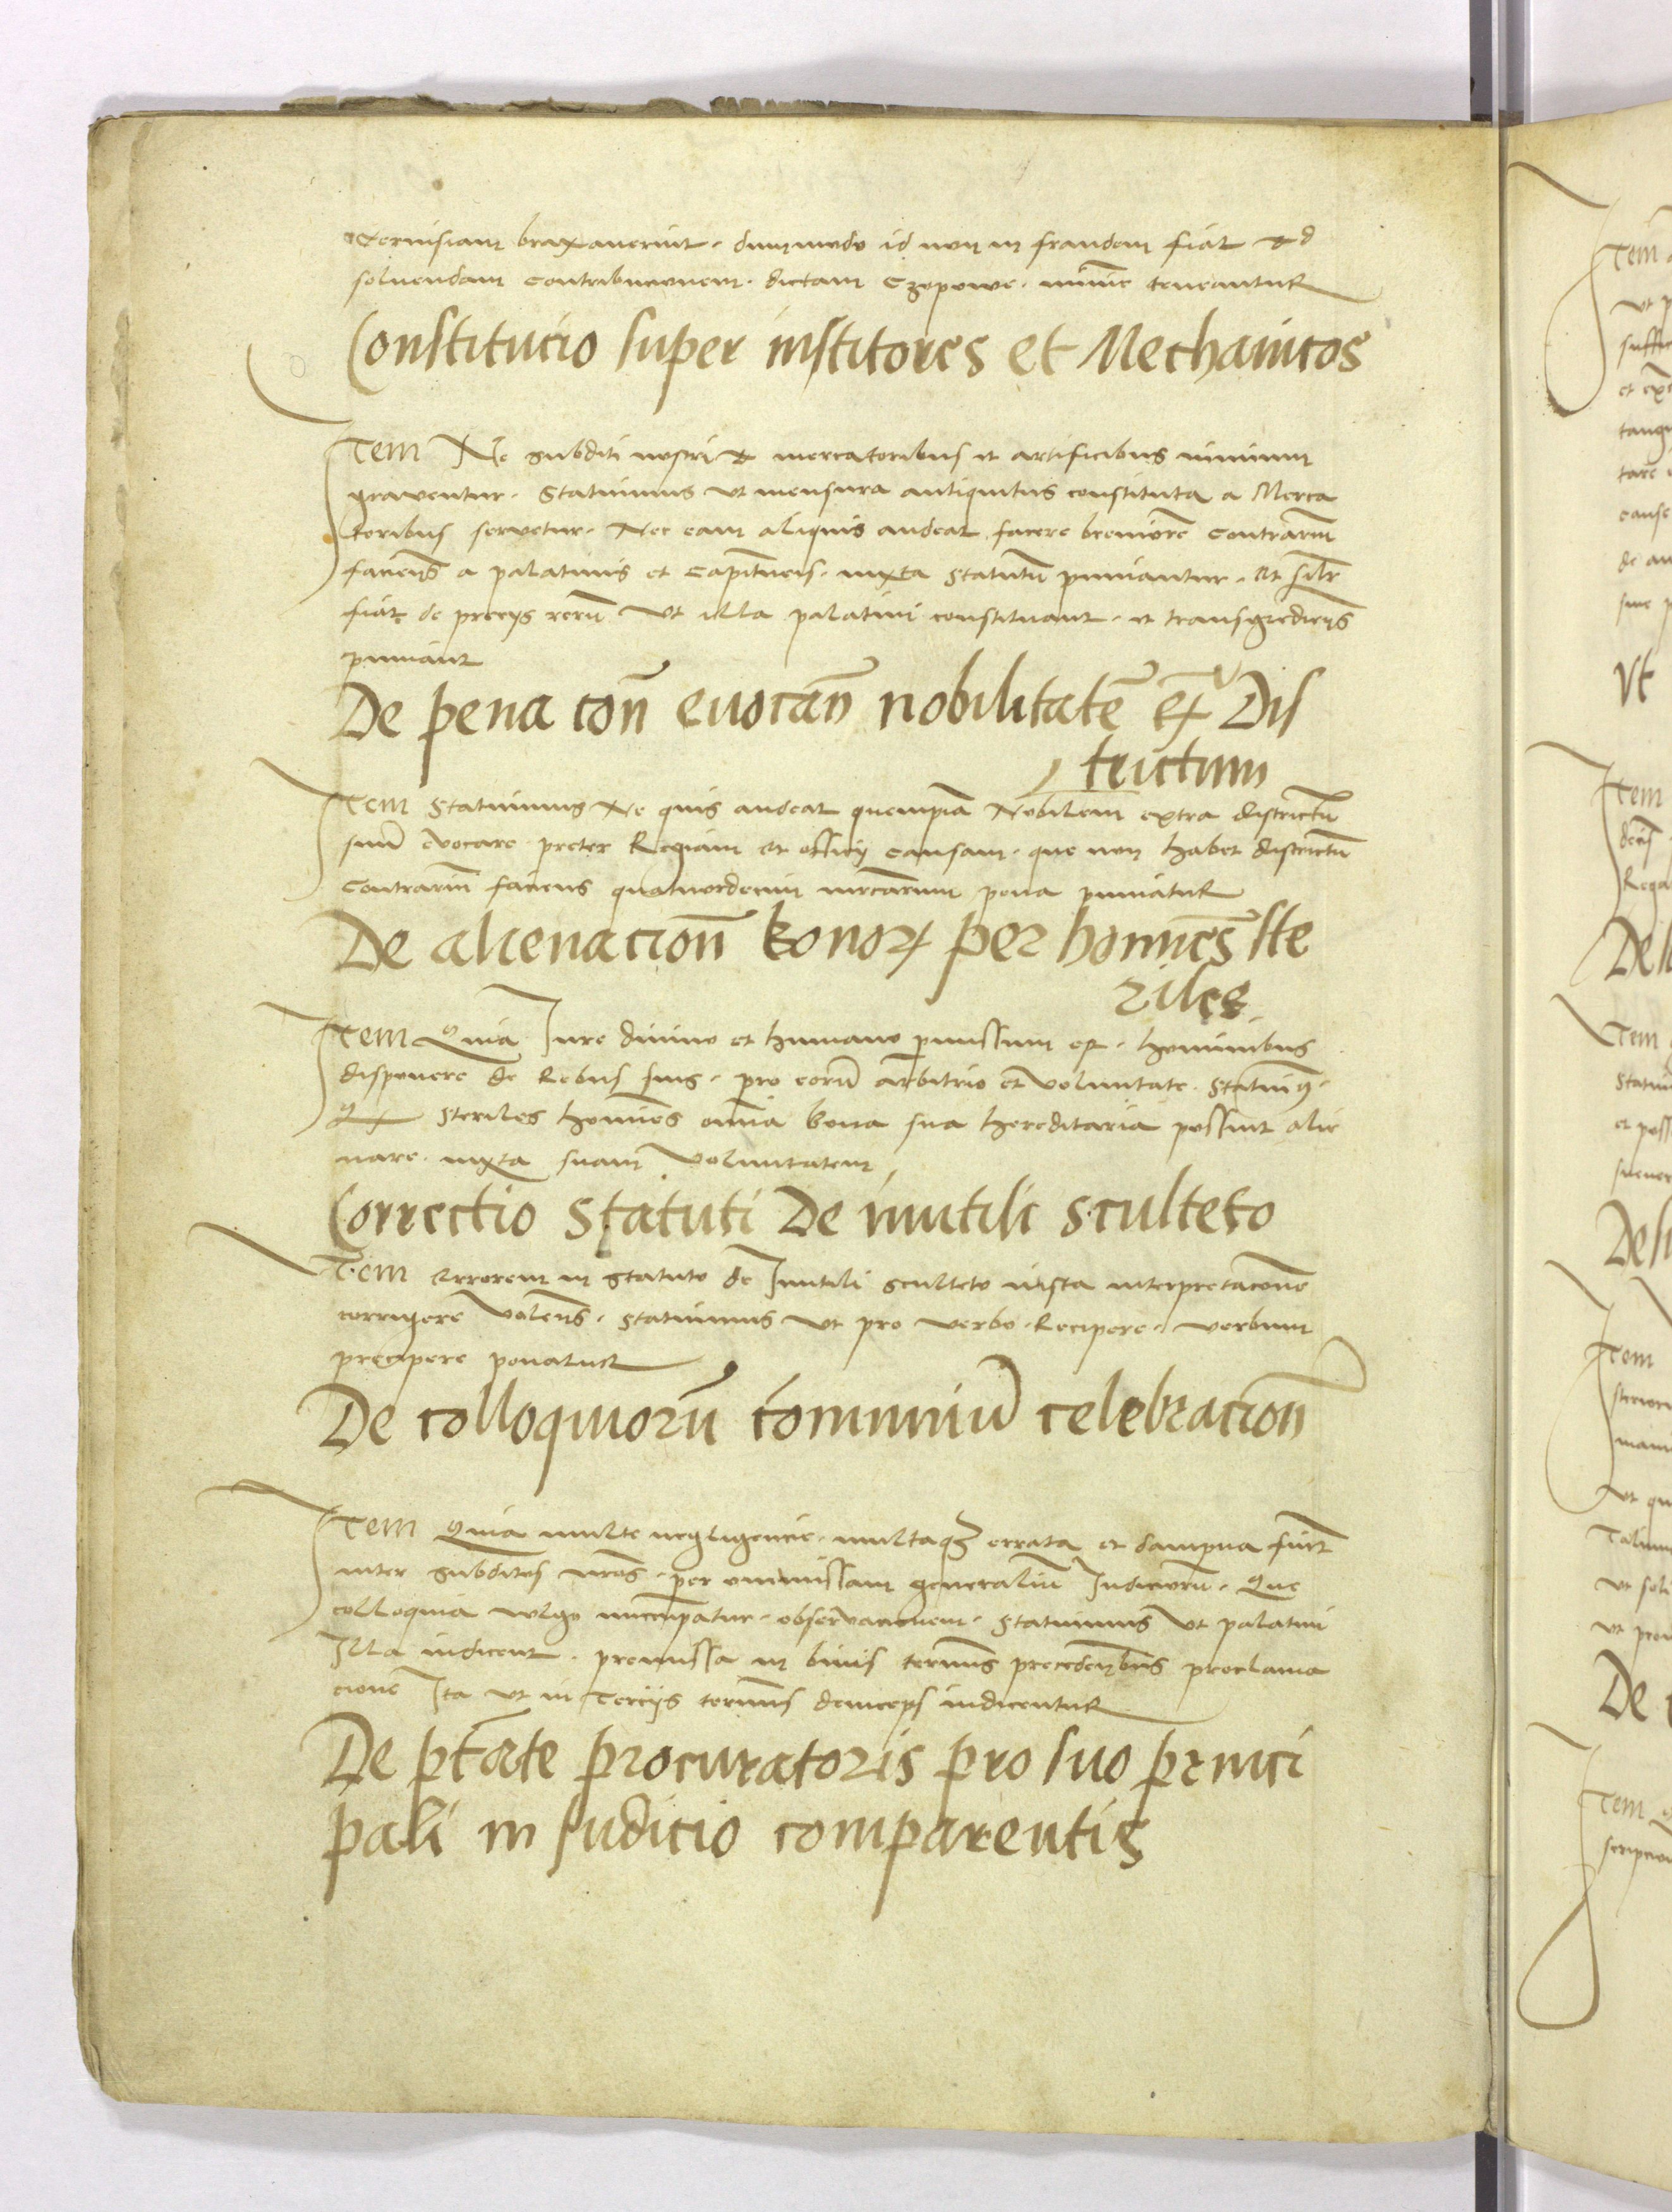 cervisiam braxaverint. dummodo id non in fraudem fiat ad
solvendam contribucionem. dictam Czopowe. minime teneantur
Constitucio super institores et Mechanicos
Item Ne subditi nostri a mercatoribus et artificibus nimium
graventur. Statuimus ut mensura antiquitus constituta a Merca
toribus servetur. Nec eam aliquis audeat facere breviorē contrariū
faciens̄ a palatinis et Capitn̄eis. iuxta statutū puniantur. Et silr̄
fiat de preciis rerū Ut illa palatini constituant. et transgrediens̄
puniant
De pena con̄ evocan̄ nobilitatē ex̄ Dis
trictum
Item Statuimus Ne quis audeat quempiā Nobilem extra districtū
suū evocare preter Regiam et officij causam. que non habet districtū
Contrariū faciens quatuordecim mrcarum pena puniatur
De alienacion̄ bonoꝝ per homines̄ ste
riles
Item Quia Jure divino et humano permissum est. hominibus
disponere de Rebus suis. pro eorū arbitrio et voluntate. Statuimꝰ.
Qꝫ steriles homīes om̄ia bona sua hereditaria possint alie
nare. iuxta suam voluntatem
Correctio Statuti De inutili sculteto
Item Errorem in statuto de Inutili sculteto iusta interpretacōne
corrigere volens̄. statuimus ut pro verbo. Recipere. verbum
precipere ponatur
De colloquiorū communiū celebracion̄
Item Quia multe negligencie. multaqꝫ errata et dampna fiūt
inter subditos nr̄os. per omissam generaliū Judiciorū. Que
colloquia wlgo nuncupatur. observacionem. Statuimus Ut palatini
Illa indicent. premissa in binis terminis precedentibus proclama
cione Ita ut in Terciis terminis deinceps indicentur
De ptāte procuratoris pro suo princi
pali in Judicio comparentis